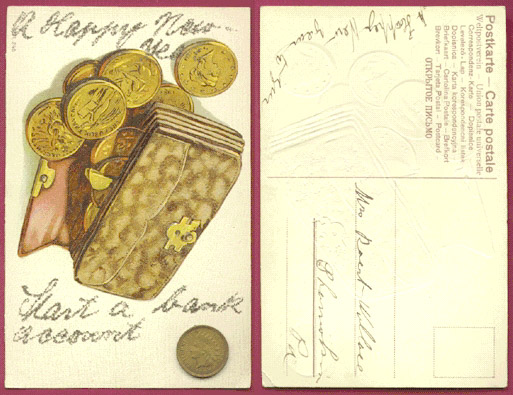 A Happy New
Year
Start a bank
account
Postkarte — Carte postale
Weltpostverein — Union postale universelle
Correspondenz-Karte — Dopisnice
Levelező-Lap — Korespondenční lístek
Dopisnica — Karta korespondencyjna
Briefkaart — Cartolina Postale — Brefkort
Brevkort — Tarjeta Postal — Postcard
ОТКРЫТОЕ ПИСЬМО
A Happy New
Year to
Mrs
Pa